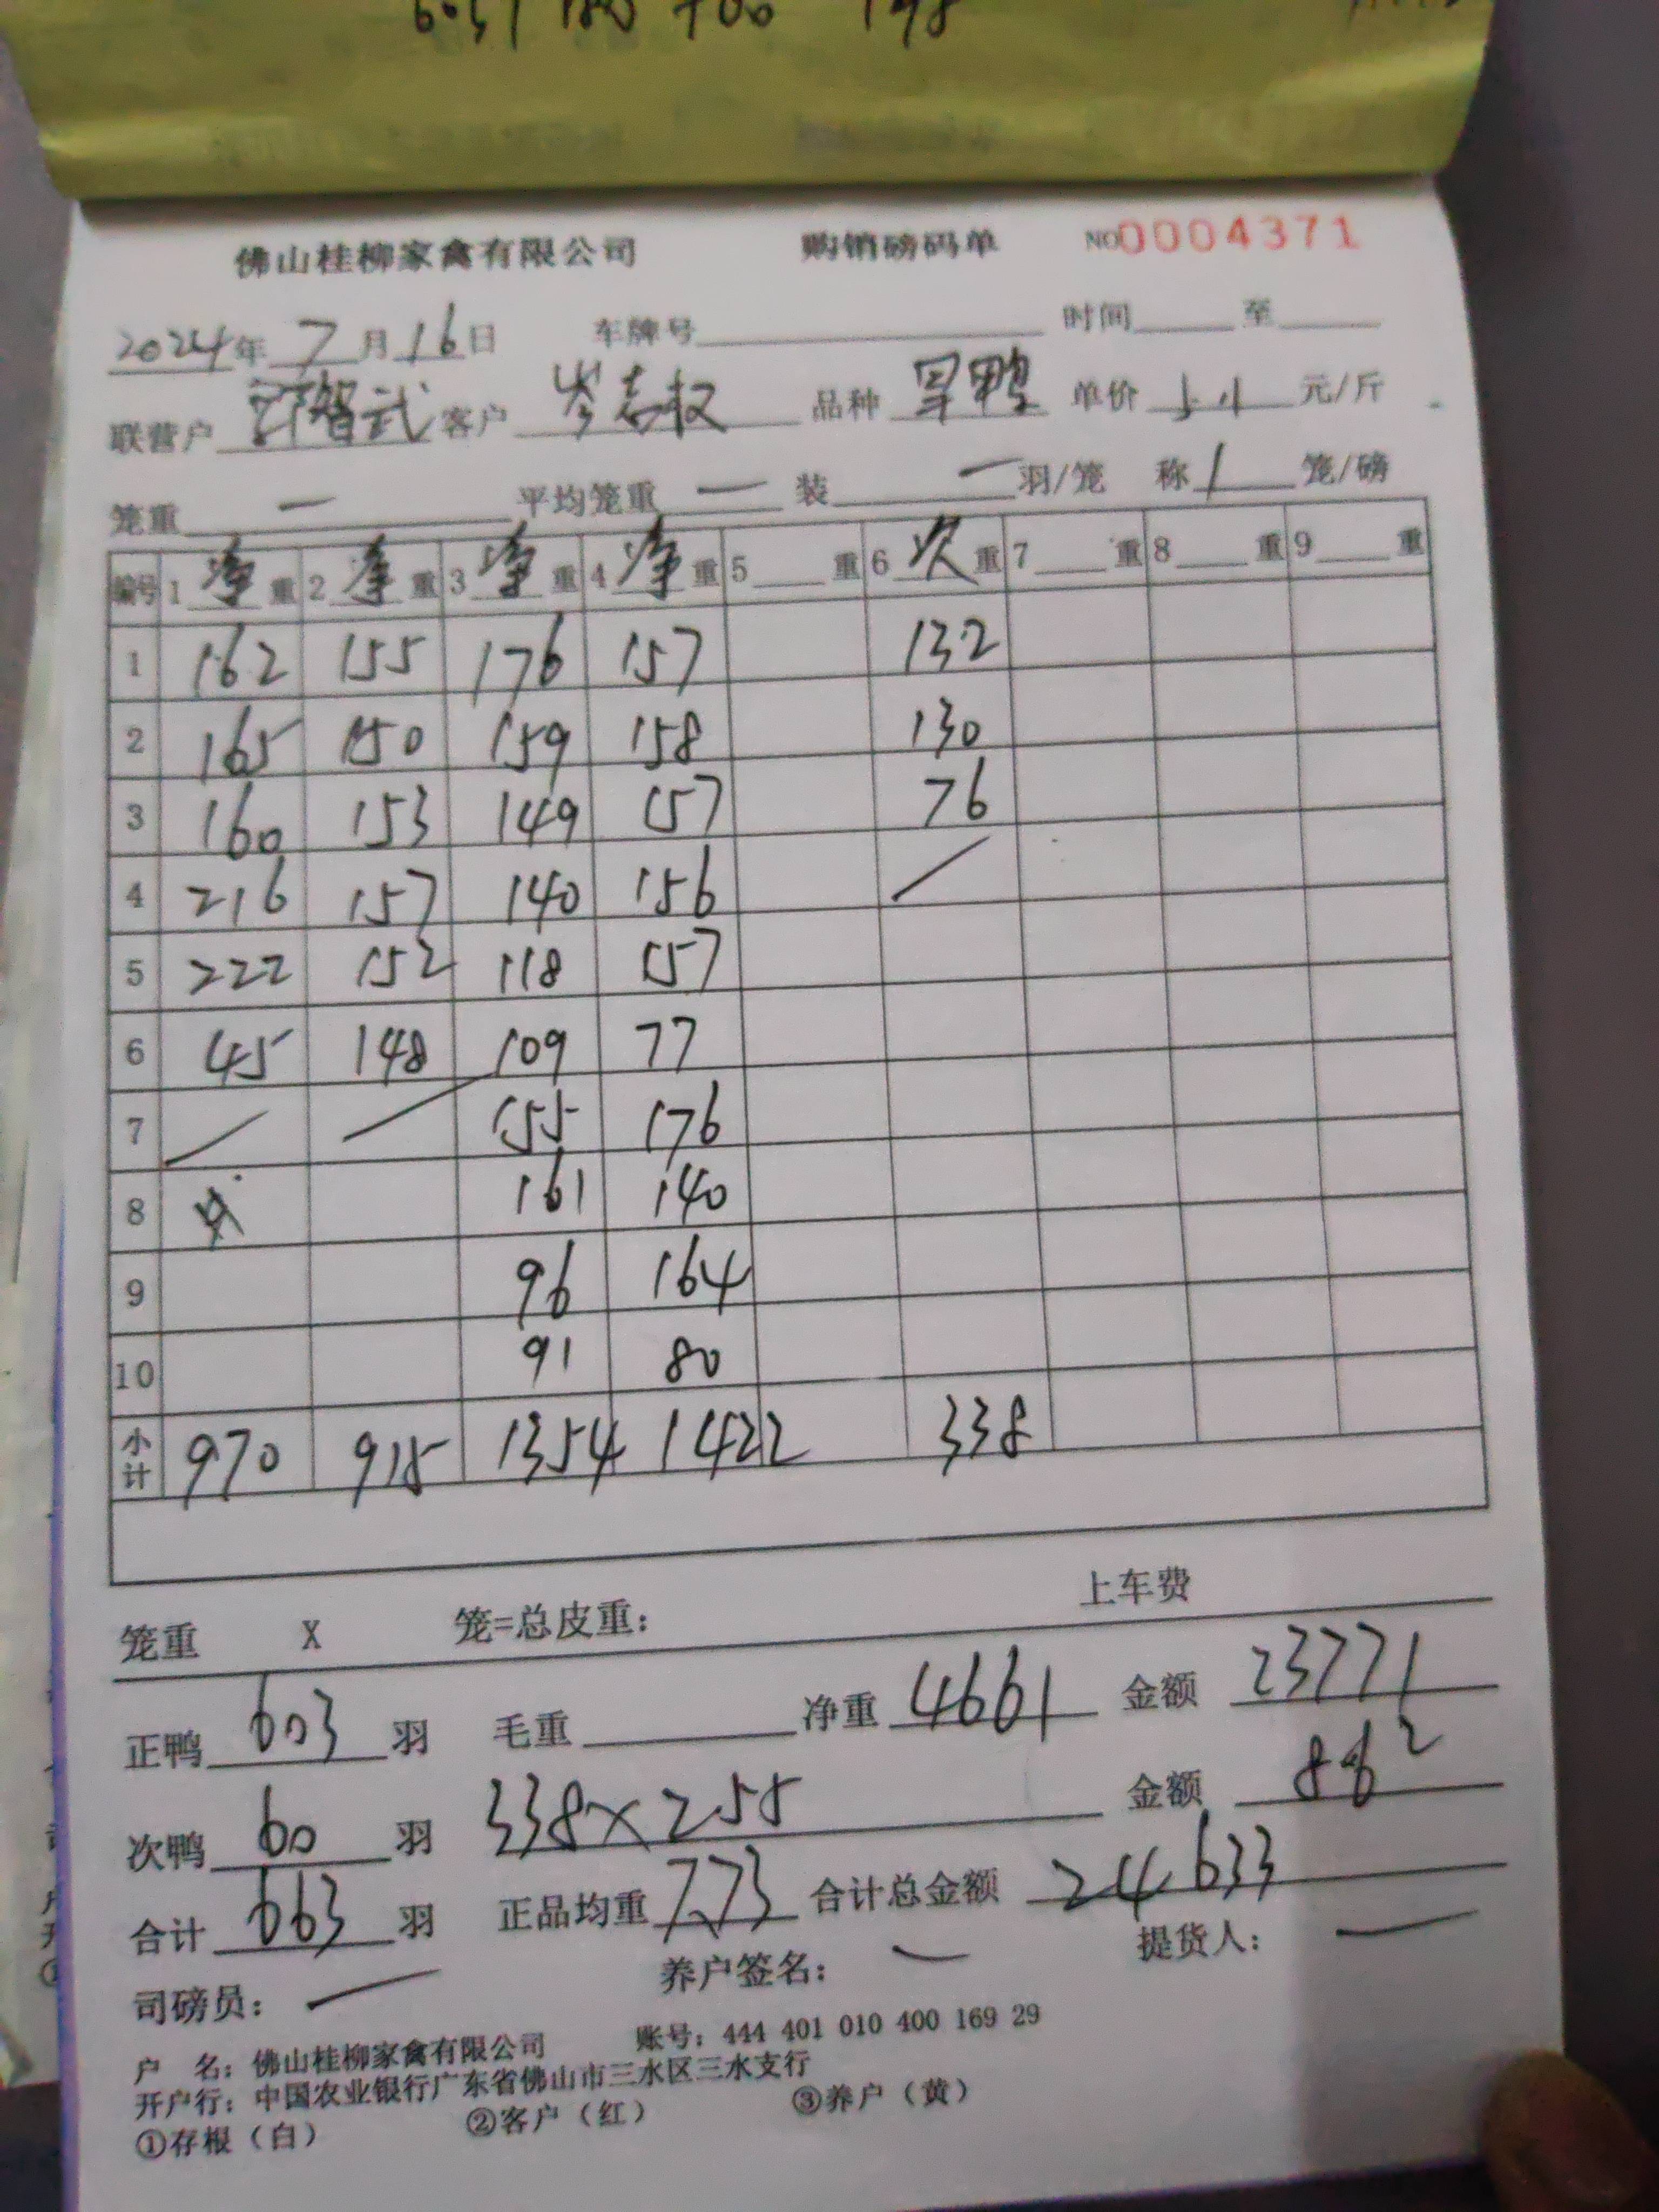 佛山桂柳家禽有限公司 购销磅码单 NO 0004371
2024年 7月16日 车牌号 时间 至
联营户 智武 客户 岑志权 品种 旱鸭 单价 5.1 元/斤
笼重 — 平均笼重 — 装 — 羽/笼 称 1 笼/磅
编号 1 净 重 2 净 重 3 净 重 4 净 重 5 重 6 次 重 7 重 8 重 9 重
1 162 155 176 157 132
2 165 150 159 158 130
3 160 153 149 157 76
4 216 157 140 156 /
5 222 152 118 157
6 45 148 109 77
7 / / 155 176
8 161 140
9 96 164
10 91 80
小计 970 915 1354 1422 338
笼重 X 笼=总皮重: 上车费
正鸭 603 羽 毛重 净重 4661 金额 23771
次鸭 60 羽 338×255 金额 862
合计 663 羽 正品均重 7.73 合计总金额 24633
司磅员: — 养户签名: — 提货人: —
户 名: 佛山桂柳家禽有限公司 账号: 444 401 010 400 169 29
开户行: 中国农业银行广东省佛山市三水区三水支行
①存根(白) ②客户(红) ③养户(黄)